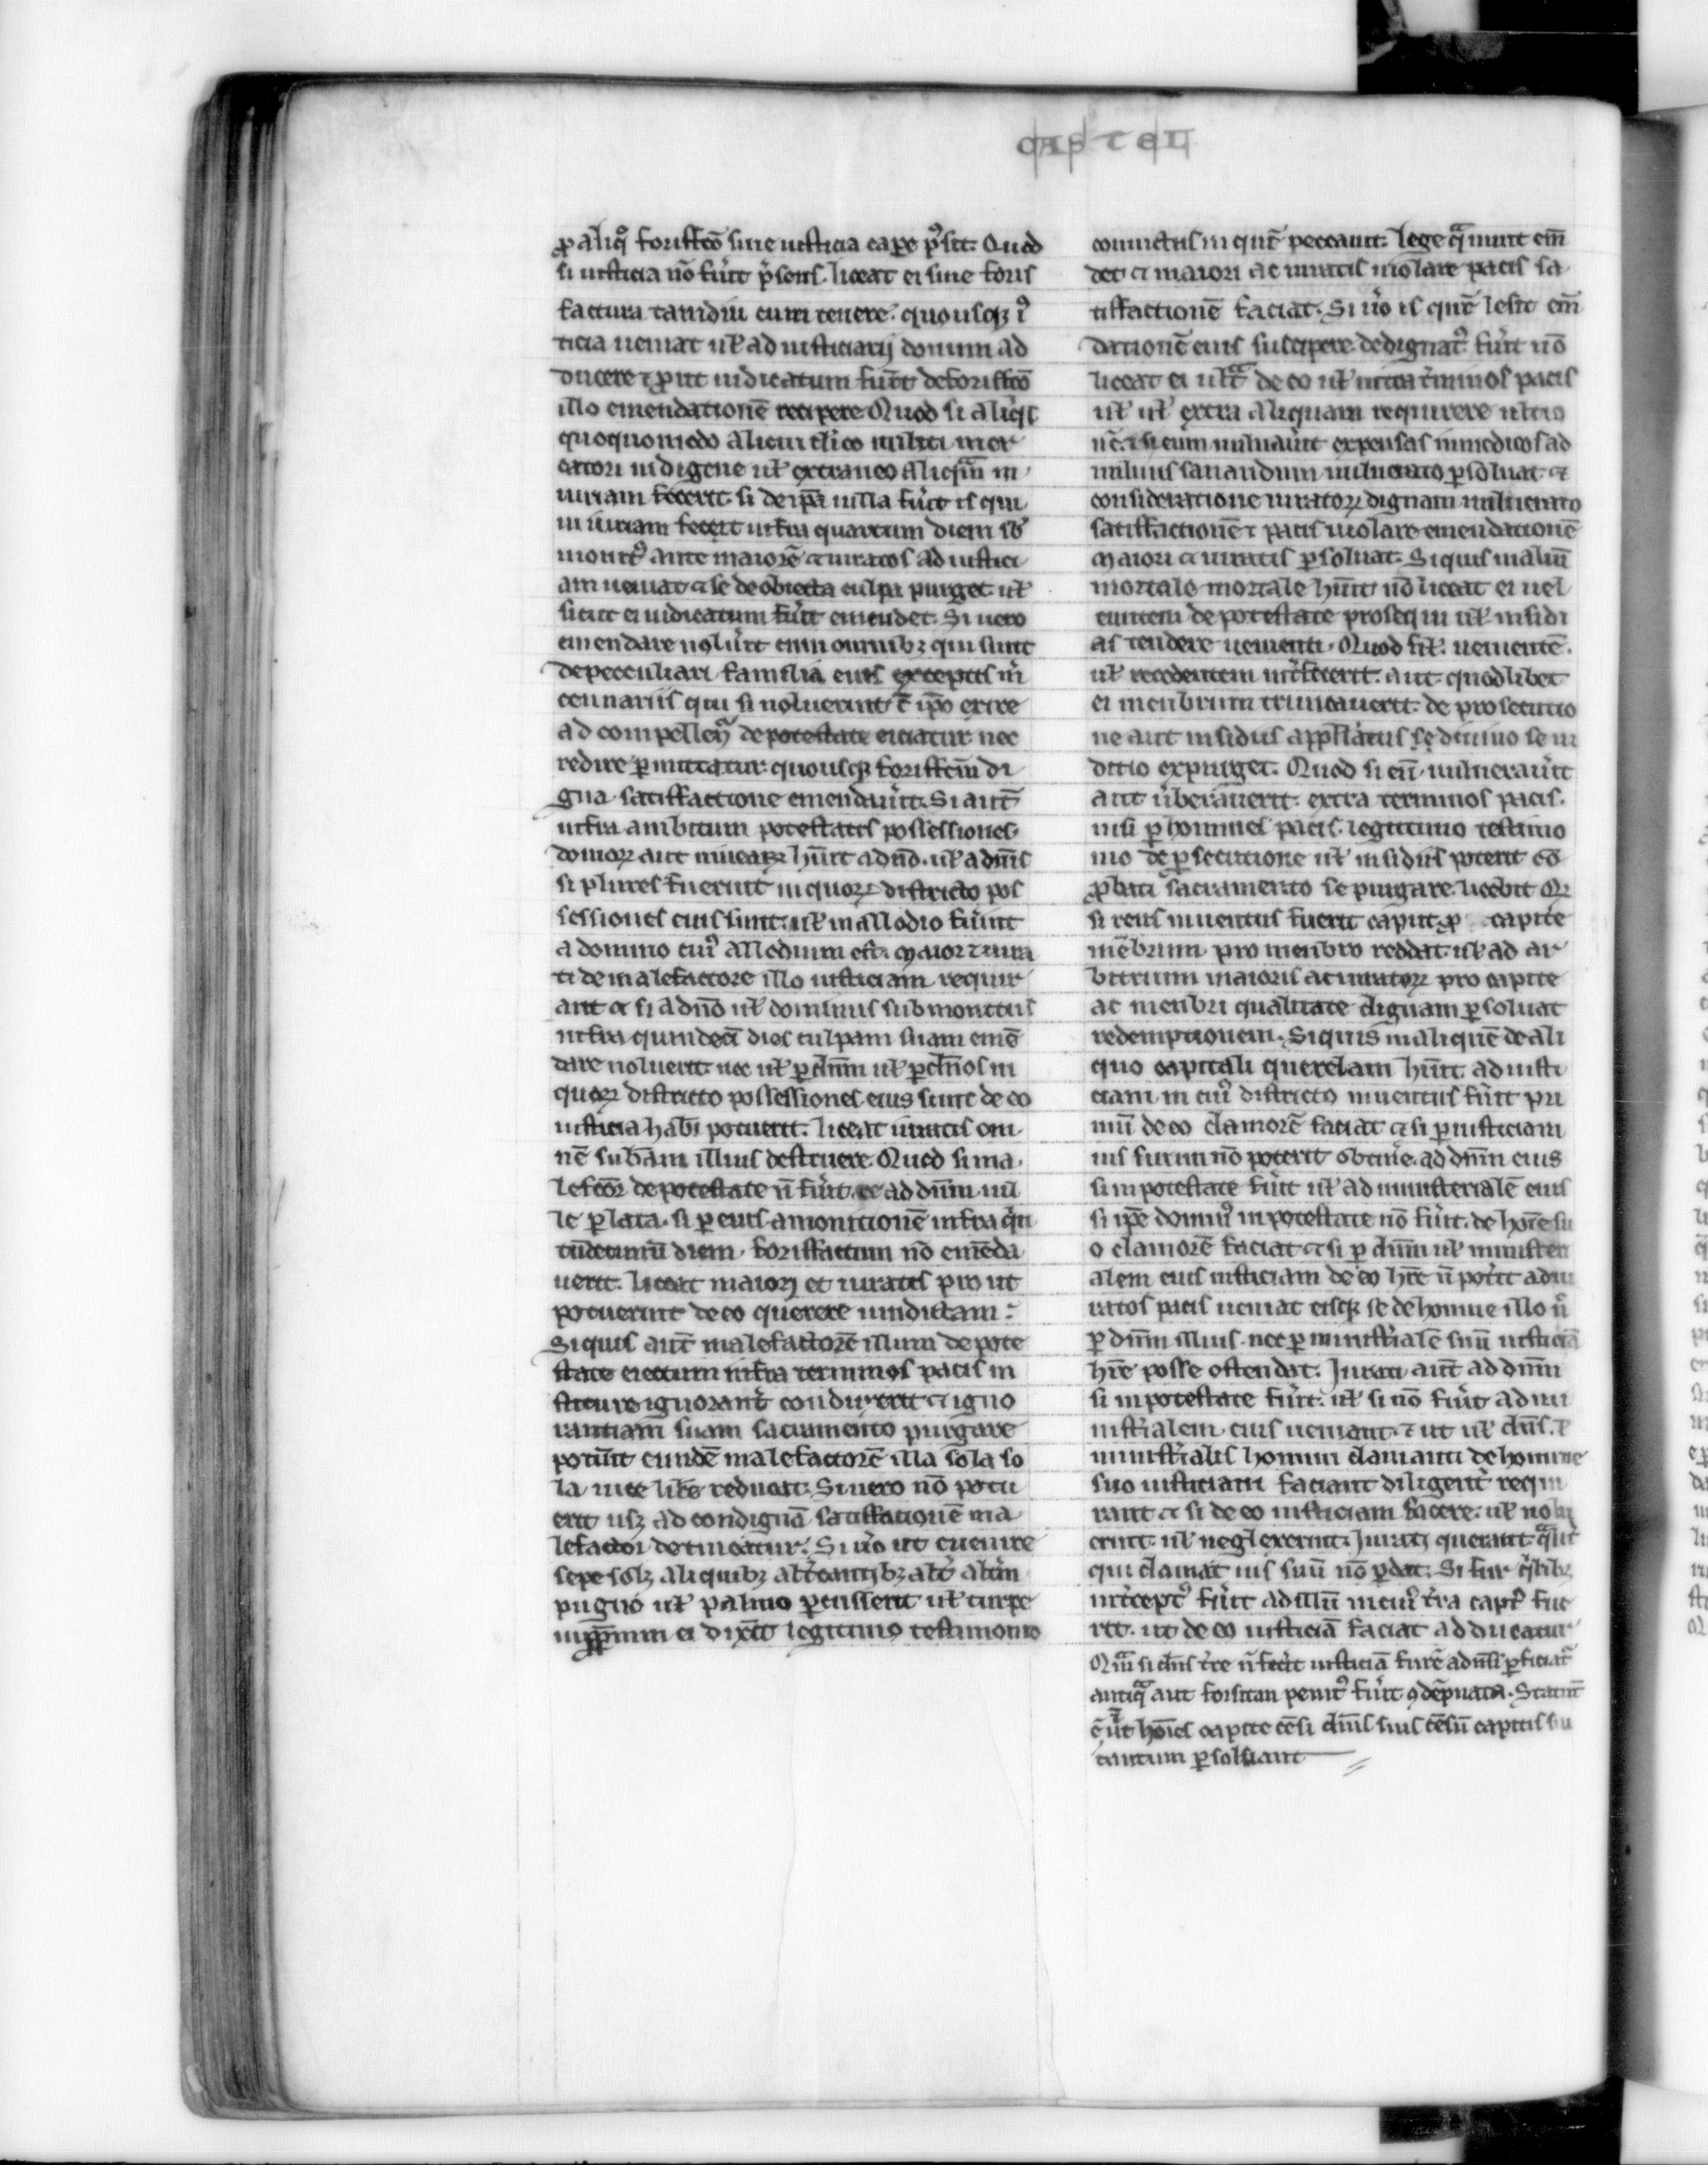 CASTEL
ꝓ aliqͦ foriffc̄o sine iusticia cape p̄sit. Quod
si iusticia nō fūit p̄sens. liceat ei sine foris
factura tamdiu eum tenere. quousqꝫ iꝰ
ticia ueniat uł ad iusticiarij domum ad
ducere ⁊ ꝓut iudicatum fūit de foriffc̄o
illo emendationē recipere Quod si aliqis
quoquomodo alicui clico militi mer
catori indigene uł extraneo aliqͣm in
iuriam fecerit. si de ip̄a uilla fūit is qui
iniuriam fecert infra quartum diem sb̄
monitꝰ ante maiorē ⁊ iuratos ad iustici
am ueniat ⁊ se de obiecta culpa purget. uł
sicut ei iudicatum fūit emendet. Si uero
emendare nolūit cum omnibꝫ qui sunt
de peculiari familia eius exceptis m̄
cennariis qui si noluerint c̄ ip̄o exire
ad compellenͫ de potestate eiciatur nec
redire ꝑmittatur quousqꝫ foriffcm̄ di
gna satiffactione emendauīt. Si aut̄
infra ambitum potestatis possessiones.
domoꝝ aut uineaꝝ hūit a dn̄o. uł a dn̄is
si plures fuerint in quoꝝ districto pos
sessiones eius sunt. uł in allodio fūint
a domino cuiꝰ allodium est. maior ⁊ iura
ti de malefactore illo iusticiam requir
ant ⁊ si a dn̄o uł dominus submonitus
infra quindecī dies culpam suam emē
dare noluerit. nec uł ꝑ dn̄m uł ꝑ dn̄os in
quoꝝ districto possessiones eius sunt de eo
iusticia hab̄i potuerit. liceat iuratis om
nē sub̄am illius destruere. Quod si ma
lefc̄or de potestate n̄ fūit ad dn̄m uil
le ꝑlata. si ꝑ eius amonitionē infra qͥn
tūdecimū diem. foriffactum nō emēda
uerit. liceat maiori et iuratis pro ut
potuerint de eo querere uindictam.
Si quis aut̄ malefactorē illum de pote
state eiectum infra terminos pacis in
stitute ignorant̄ conduxerit ⁊ igno
rantiam suam sacramento purgare
potūit eundē malefactorē illa sola so
la uice libe reducat. Si uero nō potu
erit usqꝫ ad condignā satiffationē ma
lefactor detineatur. Si ūo ut euenire
sepe solꝫ aliquibꝫ alt̄cantibꝫ alt̄ alt̄m
pugno uł palmo ꝑcusserit uł turpe
imꝓꝑium ei dix̄it legitimo testimonio
conuictus in qūe peccauit. lege qͣ uiuit em̄
det ⁊ maiori ac iuratis uiolate pacis sa
tiffactionē faciat. Si ūo is quē lesit em̄
dationē eius suscipere dedignatꝰ fūit nō
liceat ei ult̄ͣ de eo uł intra t̄minos pacis
uł uł extra aliquam requirere ultio
nē. ⁊ si eum uulnauīt expensas in medicos ad
uulnus sanandum uulnerato ꝑsoluat. ⁊
consideratione iuratoꝝ dignam uulnerato
satiffactionē ⁊ pacis uiolate emendationē
maiori ⁊ iuratis ꝑsoluat. Si quis malum̄
mortale mortale hūit nō liceat ei uel
euntem de potestate prosequi uł insidi
as tendere uenienti. Quod siͣ. uenientē.
uł recedentem int̄fecerit. aut quodlibet
ei menbrum truncauerit. de prosecutio
ne aut insidiis appl̄latus se diuino se iu
ditio expurget. Quod si eū uulnerauīt
aut ūberauerit. extra terminos pacis.
nisi ꝑ homines pacis. legitimo testimo
nio de ꝑsecutione uł insidiis poterit cō
ꝓbari sacramento se purgare licebit Qꝫ
si reus inuentus fuerit caput ꝓ capite
mēbrum pro menbro reddat. uł ad ar
bitrium maioris ac iuratoꝝ pro capite
ac menbri qualitate dignam ꝑsoluat
redemptionem. Si quis in aliquē de ali
quo capitali querelam hūit. ad iusti
ciam. in cuiꝰ districto inuentus fūit pri
mū de eo clamorē faciat ⁊ si ꝑ iusticiam
ius suum nō poterit obtin̄e. ad dn̄m eius
si in potestate fūit uł ad ministerialē eius
si ip̄e dominꝰ in potestate nō fūit. de hōīe su
o clamorē faciat ⁊ si ꝑ dn̄m uł ministeri
alem eius iusticiam de eo hr̄e n̄ pot̄it ad iu
ratos pacis ueniat eisqꝫ se de homine illo n̄
ꝑ dn̄m illius. nec ꝑ minist̄ialē suū iusticiā
hr̄e posse ostendat. Jurati aut̄ ad dn̄m
si in potestate fūit. uł si nō fūit ad mi
nist̄ialem eius ueniant. ⁊ ut uł dn̄s. uł
minist̄ialis homini clamanti de homine
suo iusticiam faciant diligent̄ requi
rant ⁊ si de eo iusticiam facere. uł nolu
erint. uł neglexerint. Jurati querant qͣlit̄
qui clamat ius suū nō ꝑdat. Si fur qͥlibꝫ
int̄ceptꝰ fūit ad illū in cuiꝰ t̄ra captꝰ fue
rit. ut de eo iusticiā faciat adducatur
Qm̄ si dn̄s t̄re n̄ fec̄it iusticiā furē ad nisi ꝑficiat̄
antiqͣ aut forsitan penitꝰ fūit ꝯdēpnata. Statut̄
ē ut hoīes capite cēsi dn̄is suis cēsū capitis su
tantum ꝑsoluant